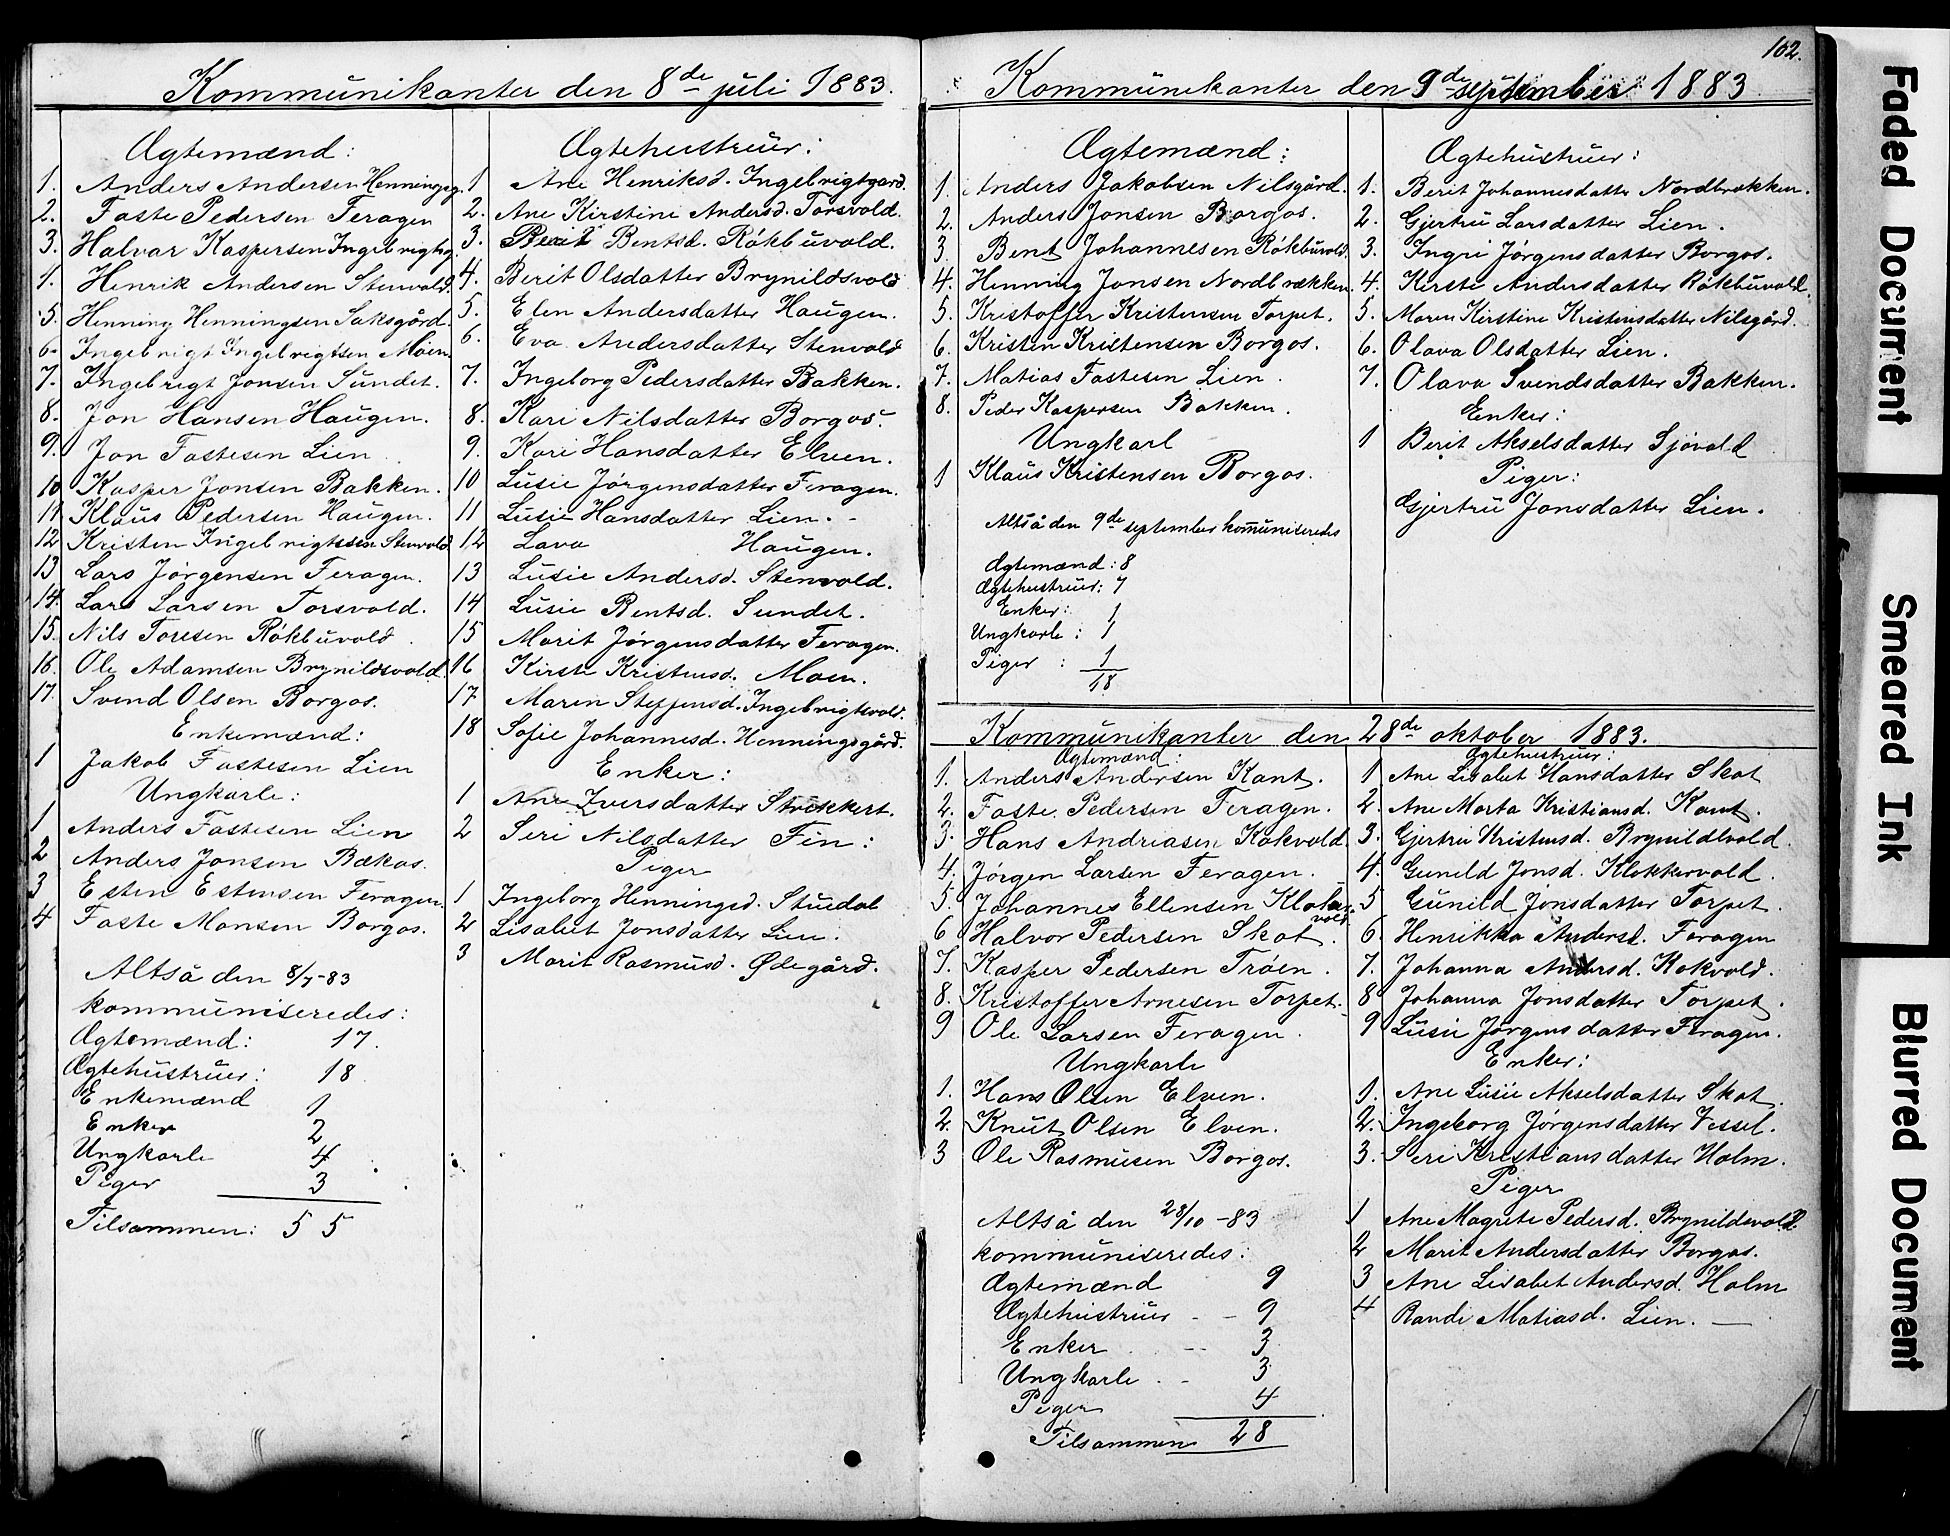 Kommunikanter den 8de juli 1883.
Ægtemænd:
1. Anders Andersen Henningsg.
2. Faste Pedersen Feragen
3. Halvar Kaspersen Ingebrigtsg.
4. Henrik Andersen Stenvold.
5. Henning Henningsen Saksgård.
6. Ingebrigt Ingebrigtsen Moen.
7. Ingebrigt Jonsen Sundet.
8. Jon Hansen Haugen.
9. Jon Fastesen Lien
10. Kasper Jonsen Bakken.
11. Klaus Pedersen Haugen.
12 Kristen Ingebrigtssen Stenvold
13 Lars Jørgensen Feragen.
14. Lars Larsen Torsvold.
15. Nils Toresen Rökbuvold.
16. Ole Adamsen Brynildsvold.
17. Svend Olsen Borgos.
Enkemænd:
1 Jakob Fastesen Lien
Ungkarle:
1 Anders Fastesen Lien
2 Anders Jonsen Bækos.
3 Esten Estensen Feragen.
4 Faste Monsen Borgos.
Altså den 8/7-83
kommuniseredes:
Ægtemænd: 17.
Ægtehustruer: 18
Enkemænd 1
Enker 2
Ungkarle 4
Piger 3
Tilsammen: 55
Ægtehustruer:
1 Ane Henriksd. Ingebrigtgard.
2. Ane Kirstine Andersd. Torsvold.
3. Berit Bentsd. Rökbuvold.
4. Berit Olsdatter Brynildsvold
5. Elen Andersdatter Haugen.
6. Eva Andersdatter Stenvold
7. Ingeborg Pedersdatter Bakken.
8. Kari Nilsdatter Borgos.
9. Kari Hansdatter Elven.
10 Lusie Jørgensdatter Feragen.
11 Lusie Hansdatter Lien.
12 Lava Haugen.
13 Lusie Andersd. Stenvold.
14 Lusie Bentsd. Sundet.
15 Marit Jørgensdatter Feragen.
16 Kirste Kristensd. Moen.
17 Maren Steffensd. Ingebrigtsvold.
18 Sofie Johannesd. Henningsgård.
Enker:
1 Ane Iversdatter Strikkert.
2 Seri Nilsdatter Fin:
Piger
1 Ingeborg Henningsd. Stuedal
2 Lisabet Jonsdatter Lien.
3 Marit Rasmusd. Ødegård.
102.
Kommunikanter den 9de september 1883
Ægtemænd:
1. Anders Jakobsen Nilsgård.
2. Anders Jonsen Borgos.
3. Bent Johannesen Rökbuvold.
4. Henning Jonsen Nordbrækken.
5. Kristoffer Kristensen Torpet.
6. Kristen Kristensen Borgos.
7. Matias Fastesen Lien.
8. Peder Kaspersen Bakken.
Ungkarl
1 Klaus Kristensen Borgos.
Altså den 9de september kommuniseredes
Ægtemænd: 8
Ægtehustruer: 7
Enker: 1
Ungkarle: 1
Piger: 1
18
Ægtehustruer:
1. Berit Johannesdatter Nordbrækken.
2. Gjertru Larsdatter Lien.
3. Ingri Jørgensdatter Borgos.
4. Kirste Andersdatter Rökbuvold.
5. Maren Kirstine Kristensdatter Nilsgård.
6. Olava Olsdatter Lien.
7. Olava Svendsdatter Bakken.
Enker:
1 Berit Akselsdatter Sjövold
Piger:
Gjertru Jonsdatter Lien.
Kommunikanter den 28de oktober 1883.
Ægtemænd:
1. Anders Andersen Kant.
2. Faste Pedersen Feragen.
3. Hans Andriasen Kokvold.
4. Jørgen Larsen Feragen.
5. Johannes Ellensen Klokervold
6 Halvor Pedersen Skot.
7. Kasper Pedersen Trøen.
8. Kristoffer Arnesen Torpet.
9 Ole Larsen Feragen.
Ungkarle
1. Hans Olsen Elven.
2. Knut Olsen Elven.
3 Ole Rasmusen Borgos.
Altså den 28/10-83
kommuniseredes:
Ægtemænd 9
Ægtehustruer 9
Enker 3
Ungkarle 3
Piger 4
Tilsammen 28
Ægtehustruer:
1 Ane Lisabet Hansdatter Skot
2. Ane Marta Kristiansd. Kant.
3. Gjertru Kristensd. Brynildsvold.
4. Gunild Jonsd. Klokkervold.
5 Gunild Jonsdatter Torpet.
6. Henrikka Andersd. Feragen
7. Johanna Andersd. Kokvold.
8 Johanna Jonsdatter Torpet.
9 Lusie Jørgensdatter Feragen.
Enker:
1. Ane Lusie Akselsdatter Skot.
2. Ingeborg Jørgensdatter Vessel.
3. Seri Kristiansdatter Holm.
Piger
1 Ane Magrete Pedersd. Brynildsvold.
2 Marit Andersdatter Borgos.
3 Ane Lisabet Andersd. Holm
4 Randi Matiasd. Lien.
Faded Document
Smeared Ink
Blurred Document